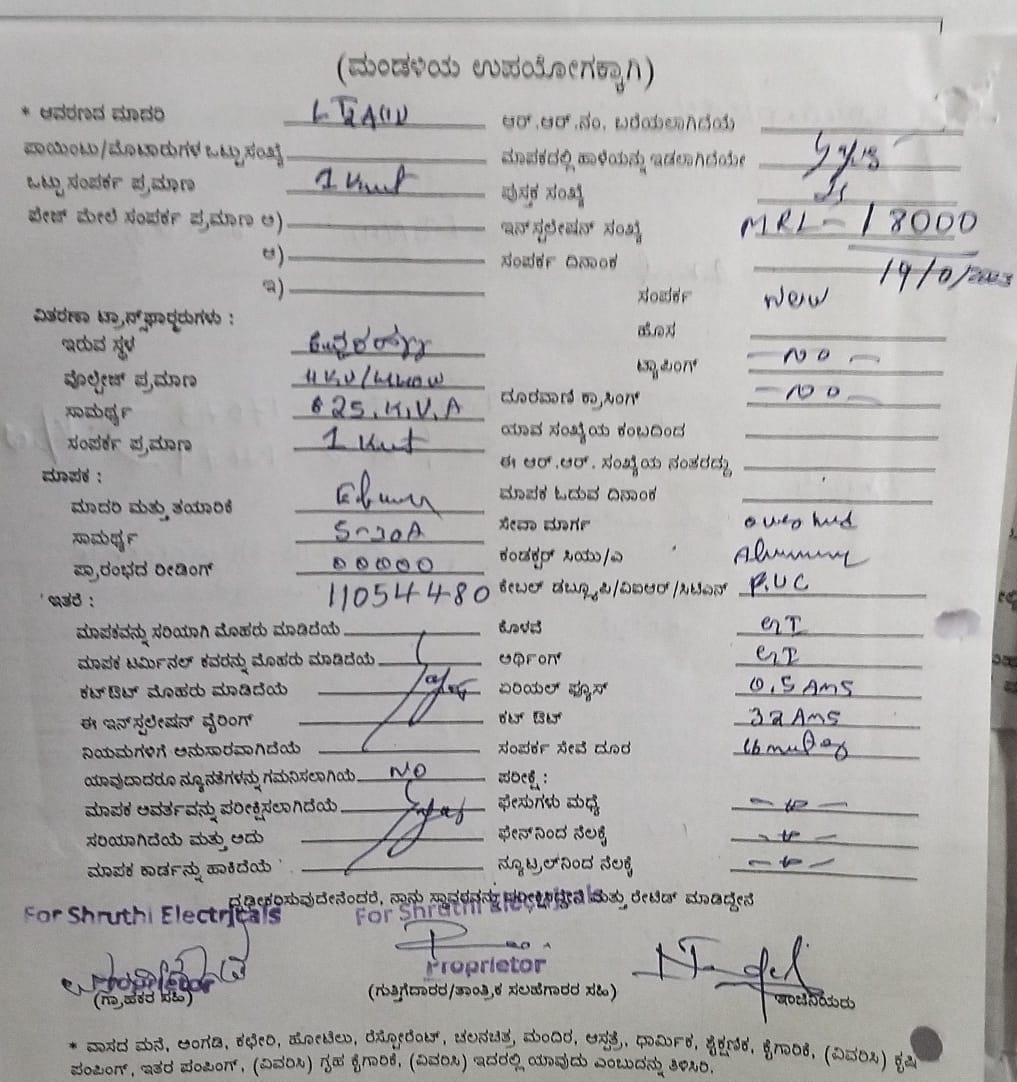 (ಮಂಡಳಿಯ ಉಪಯೋಗಕ್ಕಾಗಿ)
* ಆವರಣದ ಮಾದರಿ
ಆರ್.ಆರ್.ನಂ. ಬರೆಯಲಾಗಿದೆಯೆ
ಪಾಯಿಂಟು/ಮೋಟಾರುಗಳ ಒಟ್ಟು ಸಂಖ್ಯೆ
ಮಾಪಕದಲ್ಲಿ ಹಾಳೆಯನ್ನು ಇಡಲಾಗಿದೆಯೇ
ಒಟ್ಟು ಸಂಪರ್ಕ ಪ್ರಮಾಣ
ಪುಸ್ತಕ ಸಂಖ್ಯೆ
ಪೇಜ್ ಮೇಲೆ ಸಂಪರ್ಕ ಪ್ರಮಾಣ ಅ)
ಇನ್‌ಸ್ಟಲೇಷನ್ ಸಂಖ್ಯೆ MRL-18000
ಆ)
ಸಂಪರ್ಕ ದಿನಾಂಕ
ಇ)
ಸಂಪರ್ಕ New
ವಿತರಣಾ ಟ್ರಾನ್ಸ್‌ಫಾರ್ಮರುಗಳು :
ಹೊಸ
ಇರುವ ಸ್ಥಳ
ಟ್ಯಾಪಿಂಗ್ - NO -
ವೊಲ್ಟೇಜ್ ಪ್ರಮಾಣ
ದೂರವಾಣಿ ಕ್ರಾಸಿಂಗ್ - NO -
ಸಾಮರ್ಥ್ಯ 25.K.V.A
ಯಾವ ಸಂಖ್ಯೆಯ ಕಂಬದಿಂದ
ಸಂಪರ್ಕ ಪ್ರಮಾಣ
ಈ ಆರ್.ಆರ್. ಸಂಖ್ಯೆಯ ನಂತರದ್ದು
ಮಾಪಕ :
ಮಾಪಕ ಓದುವ ದಿನಾಂಕ
ಮಾದರಿ ಮತ್ತು ತಯಾರಿಕೆ
ಸೇವಾ ಮಾರ್ಗ
ಸಾಮರ್ಥ್ಯ 5-30A
ಕಂಡಕ್ಟರ್ ಸಿಯು/ಎ
ಪ್ರಾರಂಭದ ರೀಡಿಂಗ್ 00000
ಕೇಬಲ್ ಡಬ್ಲ್ಯೂಪಿ/ವಿಐಆರ್/ಸಿಟಿಎಸ್ P.V.C
ಇತರೆ : 11054480
ಮಾಪಕವನ್ನು ಸರಿಯಾಗಿ ಮೊಹರು ಮಾಡಿದೆಯೆ
ಕೊಳವೆ GI
ಮಾಪಕ ಟರ್ಮಿನಲ್ ಕವರನ್ನು ಮೊಹರು ಮಾಡಿದೆಯೆ
ಆರ್ಥಿಂಗ್ GI
ಕಟ್‌ಔಟ್ ಮೊಹರು ಮಾಡಿದೆಯೆ
ಏರಿಯಲ್ ಫ್ಯೂಸ್ 0.5 AMS
ಈ ಇನ್‌ಸ್ಟಲೇಷನ್ ವೈರಿಂಗ್
ಕಟ್ ಔಟ್ 32 AMS
ನಿಯಮಗಳಿಗೆ ಅನುಸಾರವಾಗಿದೆಯೆ
ಸಂಪರ್ಕ ಸೇವೆ ದೂರ
ಯಾವುದಾದರೂ ನ್ಯೂನತೆಗಳನ್ನು ಗಮನಿಸಲಾಗಿಯೆ NO
ಪರೀಕ್ಷೆ :
ಮಾಪಕ ಆವರ್ತವನ್ನು ಪರೀಕ್ಷಿಸಲಾಗಿದೆಯೆ
ಫೇಸುಗಳು ಮಧ್ಯೆ
ಸರಿಯಾಗಿದೆಯೆ ಮತ್ತು ಅದು
ಫೇಸ್‌ನಿಂದ ನೆಲಕ್ಕೆ
ಮಾಪಕ ಕಾರ್ಡನ್ನು ಹಾಕಿದೆಯೆ
ನ್ಯೂಟ್ರಲ್‌ನಿಂದ ನೆಲಕ್ಕೆ
ದೃಢೀಕರಿಸುವುದೇನೆಂದರೆ, ನಾನು ಸ್ಥಾವರವನ್ನು ಪರೀಕ್ಷಿಸಿದ್ದೇನೆ ಮತ್ತು ರೇಟೆಡ್ ಮಾಡಿದ್ದೇನೆ
For Shruthi Electricals
For Shruthi Electricals
Proprietor
Proprietor
(ಗ್ರಾಹಕರ ಸಹಿ)
(ಗುತ್ತಿಗೆದಾರರ/ತಾಂತ್ರಿಕ ಸಲಹೆಗಾರರ ಸಹಿ)
ಇಂಜಿನಿಯರು
* ವಾಸದ ಮನೆ, ಅಂಗಡಿ, ಕಛೇರಿ, ಹೋಟೆಲು, ರೆಸ್ಟೋರೆಂಟ್, ಚಲನಚಿತ್ರ, ಮಂದಿರ, ಆಸ್ಪತ್ರೆ, ಧಾರ್ಮಿಕ, ಶೈಕ್ಷಣಿಕ, ಕೈಗಾರಿಕೆ, (ವಿವರಿಸಿ) ಕೃಷಿ
ಪಂಪಿಂಗ್, ಇತರ ಪಂಪಿಂಗ್, (ವಿವರಿಸಿ) ಗೃಹ ಕೈಗಾರಿಕೆ, (ವಿವರಿಸಿ) ಇದರಲ್ಲಿ ಯಾವುದು ಎಂಬುದನ್ನು ತಿಳಿಸಿರಿ.